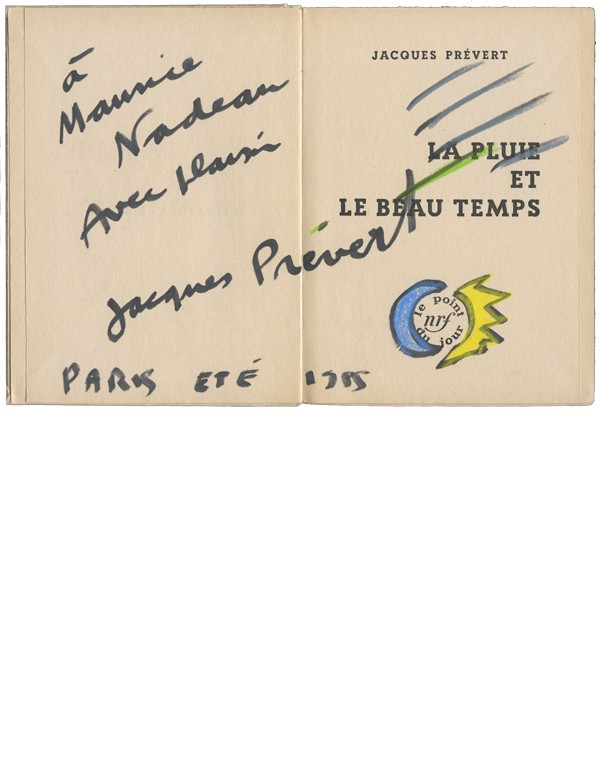 à
Maurice
Nadeau
Avec plaisir
Jacques Prévert
PARIS ETÉ 1955
JACQUES PRÉVERT
LA PLUIE
ET
LE BEAU TEMPS
le point
nrf
du jour